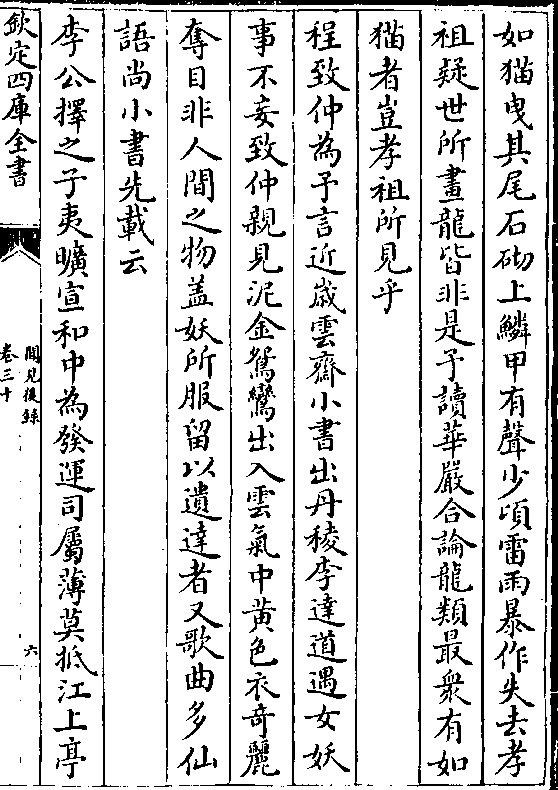 如猫曳其尾石砌上鱗甲有聲少頃雷雨暴作失去孝
祖疑世所畫龍皆非是予讀華嚴合論龍類最衆有如
猫者豈孝祖所見乎
程致仲為予言近嵗雲齋小書出丹稜李達道遇女妖
事不妄致仲親見泥金鴛鸞出入雲氣中黄色衣竒麗
奪目非人間之物盖妖所服留以遺達者又歌曲多仙
語尚小書先載云
李公擇之子夷曠宣和中為發運司屬薄莫抵江上亭
欽定四庫全書
聞見後録
卷三十
六